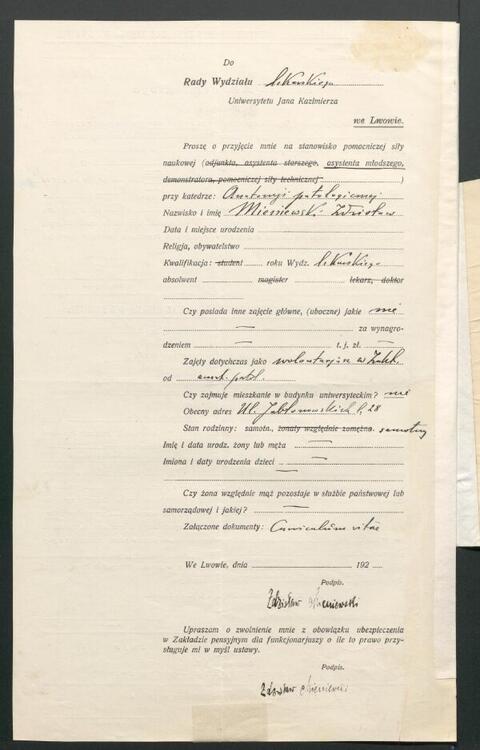 Do
Rady Wydziału lekarskiego
Uniwersytetu Jana Kazimierza
we Lwowie.
Proszę o przyjęcie mnie na stanowisko pomocniczej siły
naukowej (adjunkta, asystenta starszego, asystenta młodszego,
demonstratora, pomocniczej siły technicznej )
przy katedrze: Anatomji patologicznej
Nazwisko i imię Mieniewski Zdzisław
Data i miejsce urodzenia
Religja, obywatelstwo
Kwalifikacja: student roku Wydz. lekarskiego
absolwent magister lekarz, doktor
Czy posiada inne zajęcie główne, (uboczne) jakie nie
— za wynagro-
dzeniem — t. j. zł. —
Zajęty dotychczas jako wolontarjusz w Zakł.
od anat. patol.
Czy zajmuje mieszkanie w budynku uniwersyteckim? nie
Obecny adres Ul. Jabłonowskich l. 28
Stan rodzinny: samotn., żonaty względnie zamężna. samotny
Imię i data urodz. żony lub męża —
Imiona i daty urodzenia dzieci —
—
Czy żona względnie mąż pozostaje w służbie państwowej lub
samorządowej i jakiej? —
Załączone dokumenty: Curriculum vitae
We Lwowie, dnia 192
Podpis.
Zdzisław Mieniewski
Upraszam o zwolnienie mnie z obowiązku ubezpieczenia
w Zakładzie pensyjnym dla funkcjonarjuszy o ile to prawo przy-
sługuje mi w myśl ustawy.
Podpis.
Zdzisław Mieniewski